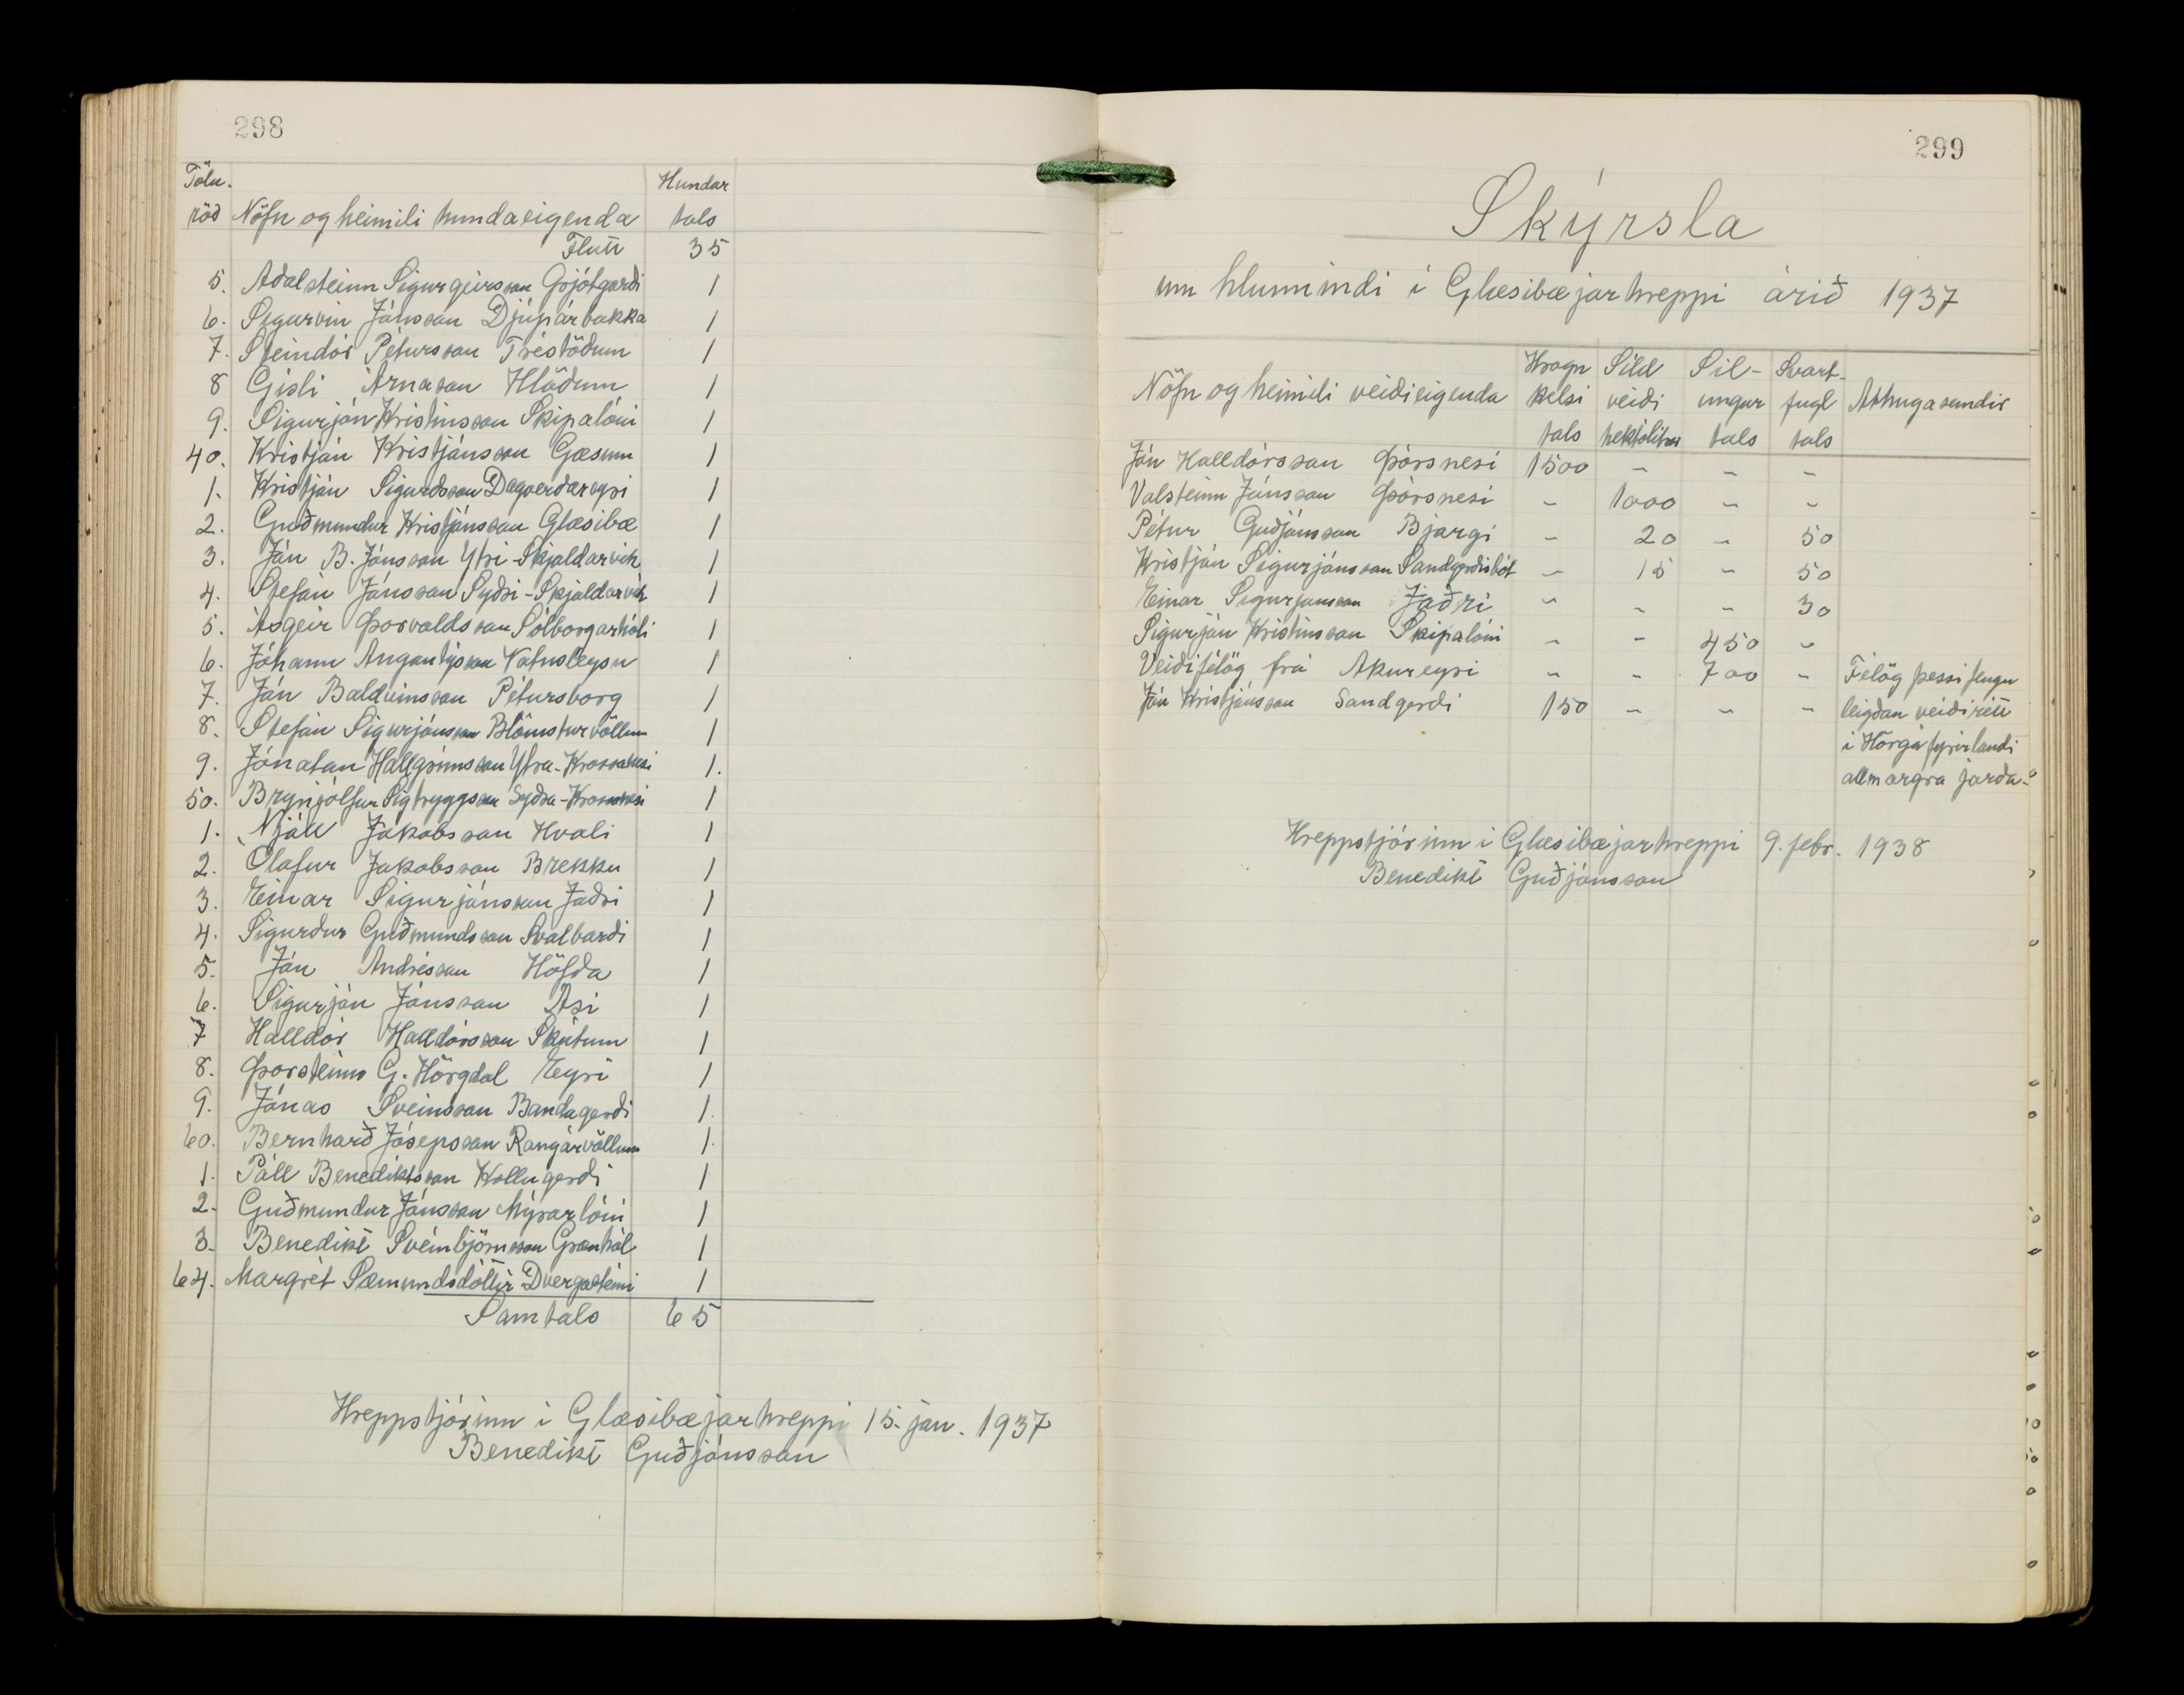 298
Tölu- Hundar
röð Nöfn og heimili hundaeigenda tals
Flutt 35
5. Aðalsteinn Sigurgeirsson Grjótgarði 1
6. Sigurvin Jónsson Djúpárbakka 1
7. Steindór Pétursson Tréstöðum 1
8 Gísli Árnason Hlöðum 1
9. Sigurjón Kristinsson Skipalóni 1
40. Kristján Kristjánsson Gæsum 1
1. Kristján Sigurdsson Dagverðareyri 1
2. Guðmundur Kristjánsson Glæsibæ 1
3. Jón B. Jónsson Ytri-Skjaldarvík 1
4. Stefán Jónsson Syðri-Skjaldarvík 1
5. Ásgeir Þorvaldsson Sólborgarhóli 1
6. Jóhann Angantýsson Vatnsleysu 1
7. Jón Baldvinsson Pétursborg 1
8. Stefán Sigurjónsson Blómsturvöllum 1
9. Jónatan Hallgrímsson Ytra-Krossanesi 1.
50. Brynjólfur Sigtryggsson Syðra-Krossanesi 1
1. Njáll Jakobsson Hvoli 1
2. Ólafur Jakobsson Brekku 1
3. Einar Sigurjónsson Jaðri 1
4. Sigurður Guðmundsson Svalbarði 1
5. Jón Andrésson Höfða 1
6. Sigurjón Jónsson Ási 1
7 Halldór Halldórsson Skútum 1
8. Þorsteinn G. Hörgdal Eyri 1
9. Jónas Sveinsson Bandagerði 1.
60. Bernharð Jósepsson Rangárvöllum 1.
1. Páll Benediktsson Kollugerði 1
2. Guðmundur Jónsson Mýrarlóni 1
3. Benedikt Sveinbjörnsson Grænhól 1
64. Margrét Sæmundsdóttir Dvergasteini 1
Samtals 65
Hreppstjórinn í Glæsibæjarhreppi 15. jan. 1937
Benedikt Guðjónsson
299
Skýrsla
um hlunnindi í Glæsibæjarhreppi árið 1937
Hrogn Síld Sil- Svart-
Nöfn og heimili veiðieigenda kelsi veiði ungur fugl Athugasemdir
tals hektólítrar tals tals
Jón Halldórsson Þórsnesi 1500 - - -
Valsteinn Jónsson Þórsnesi - 1000 - -
Pétur Guðjónsson Bjargi - 20 - 50
Kristján Sigurjónsson Sandgerðisbót - 15 - 50
Einar Sigurjónsson Jaðri - - - 30
Sigurjón Kristinsson Skipalóni - - 450 -
Veiðifélög frá Akureyri - - 700 - Félög þessi fengu
Jón Kristjánsson Sandgerði 150 - - - leigðan veiðirétt
í Hörgá fyrir landi
allmargra jarða.
Hreppstjórinn í Glæsibæjarhreppi 9. febr. 1938
Benedikt Guðjónsson